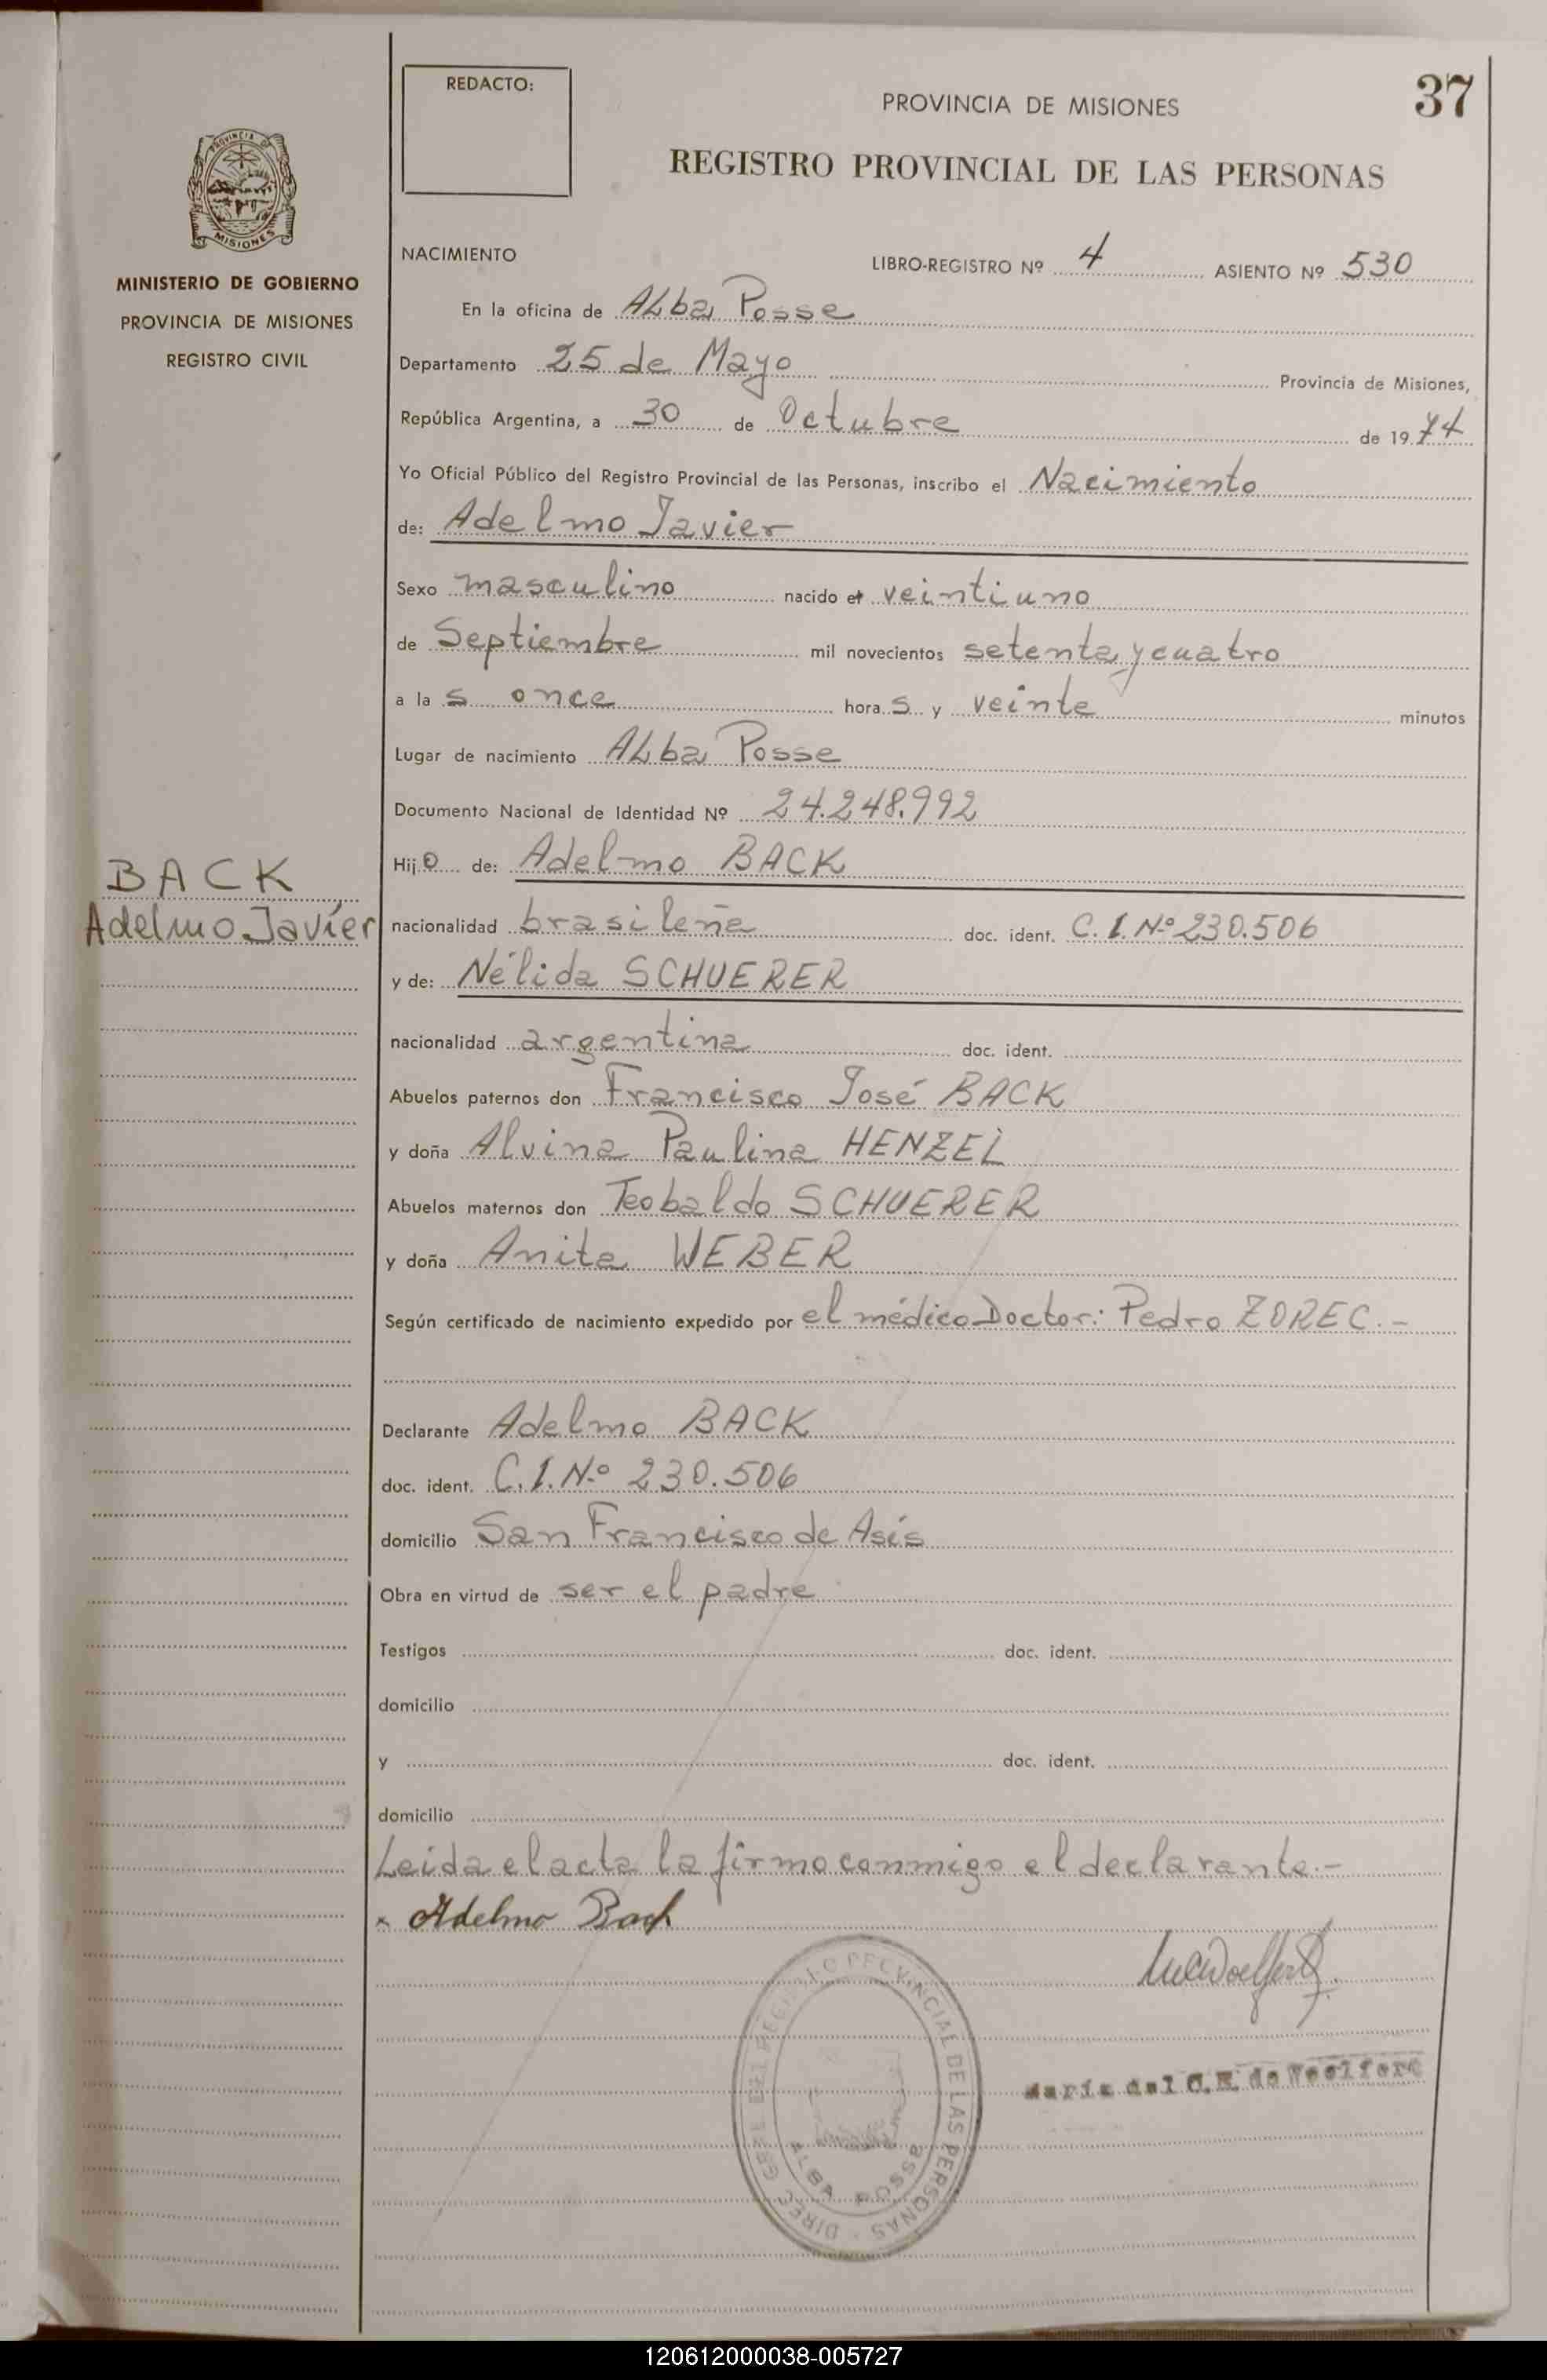 REDACTO:
37
PROVINCIA DE MISIONES
REGISTRO PROVINCIAL DE LAS PERSONAS
PROVINCIA DE
MISIONES
MINISTERIO DE GOBIERNO
PROVINCIA DE MISIONES
REGISTRO CIVIL
BACK
Adelmo Javier
NACIMIENTO LIBRO-REGISTRO Nº 4 ASIENTO Nº 530
En la oficina de Alba Posse
Departamento 25 de Mayo Provincia de Misiones,
República Argentina, a 30 de Octubre de 1974
Yo Oficial Público del Registro Provincial de las Personas, inscribo el Nacimiento
de: Adelmo Javier
Sexo masculino nacido el veintiuno
de Septiembre mil novecientos setenta y cuatro
a las once horas y veinte minutos
Lugar de nacimiento Alba Posse
Documento Nacional de Identidad Nº 24.248.992
Hijo de: Adelmo BACK
nacionalidad brasileña doc. ident. C.I.Nº 230.506
y de: Nélida SCHUERER
nacionalidad argentina doc. ident.
Abuelos paternos don Francisco José BACK
y doña Alvina Paulina HENZEL
Abuelos maternos don Teobaldo SCHUERER
y doña Anita WEBER
Según certificado de nacimiento expedido por el médico Doctor: Pedro ZOREC.-
Declarante Adelmo BACK
doc. ident. C.I.Nº 230.506
domicilio San Francisco de Asís
Obra en virtud de ser el padre
Testigos doc. ident.
domicilio
y doc. ident.
domicilio
Leída el acta la firmo conmigo el declarante.-
x Adelmo Back
PROVINCIAL DE LAS PERSONAS
ALBA POSSE
María del C. de Woelfert
120612000038-005727